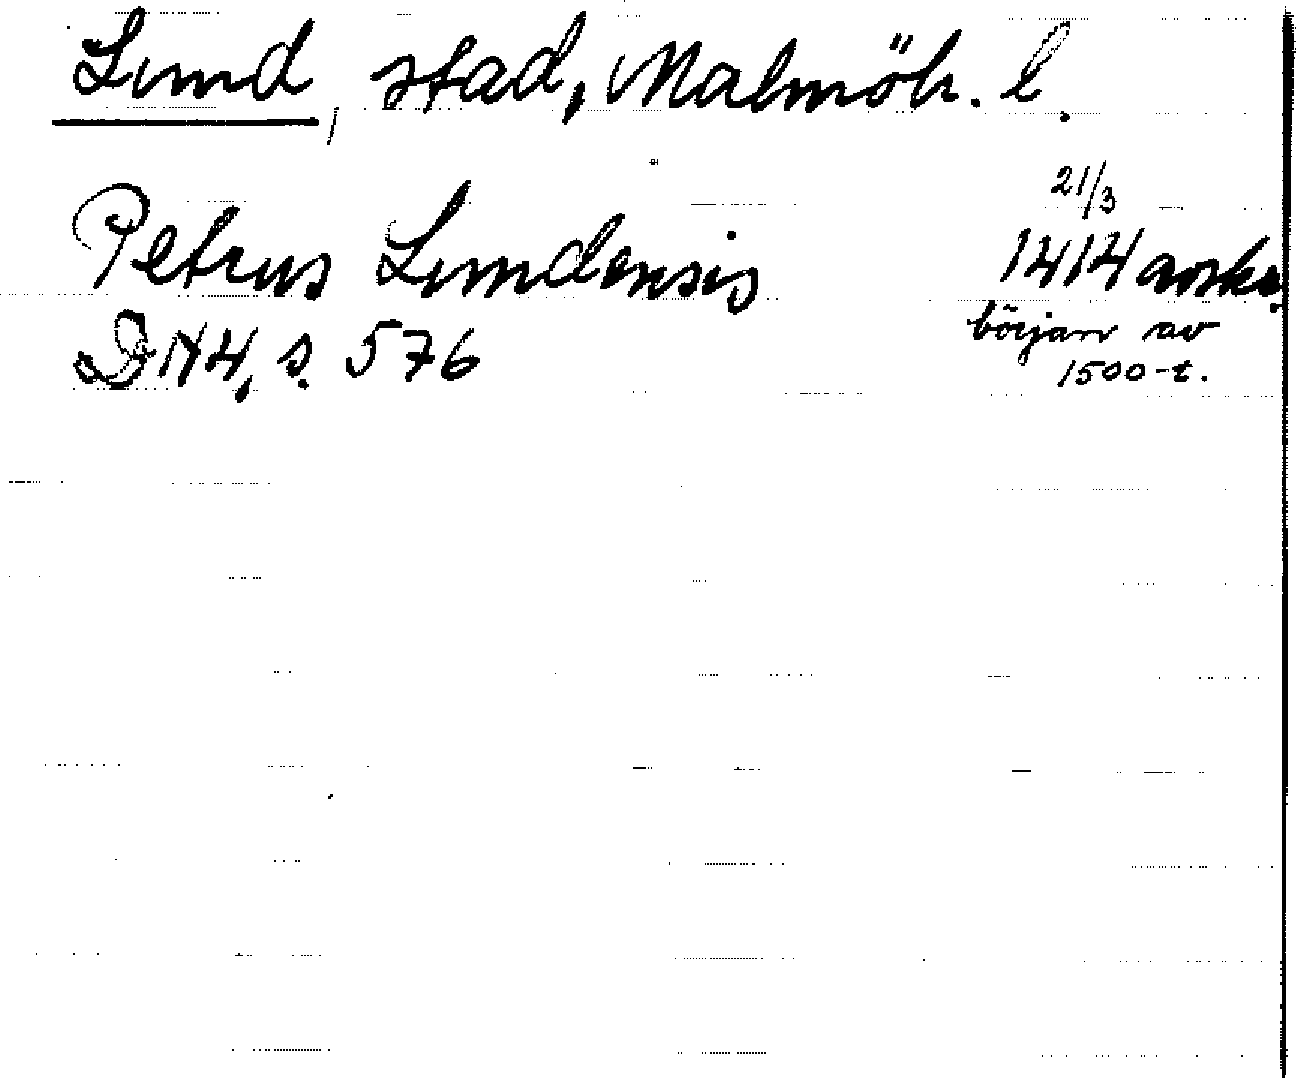 Lund, stad, Malmöh. l.
21/3
Petrus Lundensis 1414 avskr.
DN4, s. 576 början av
1500-t.